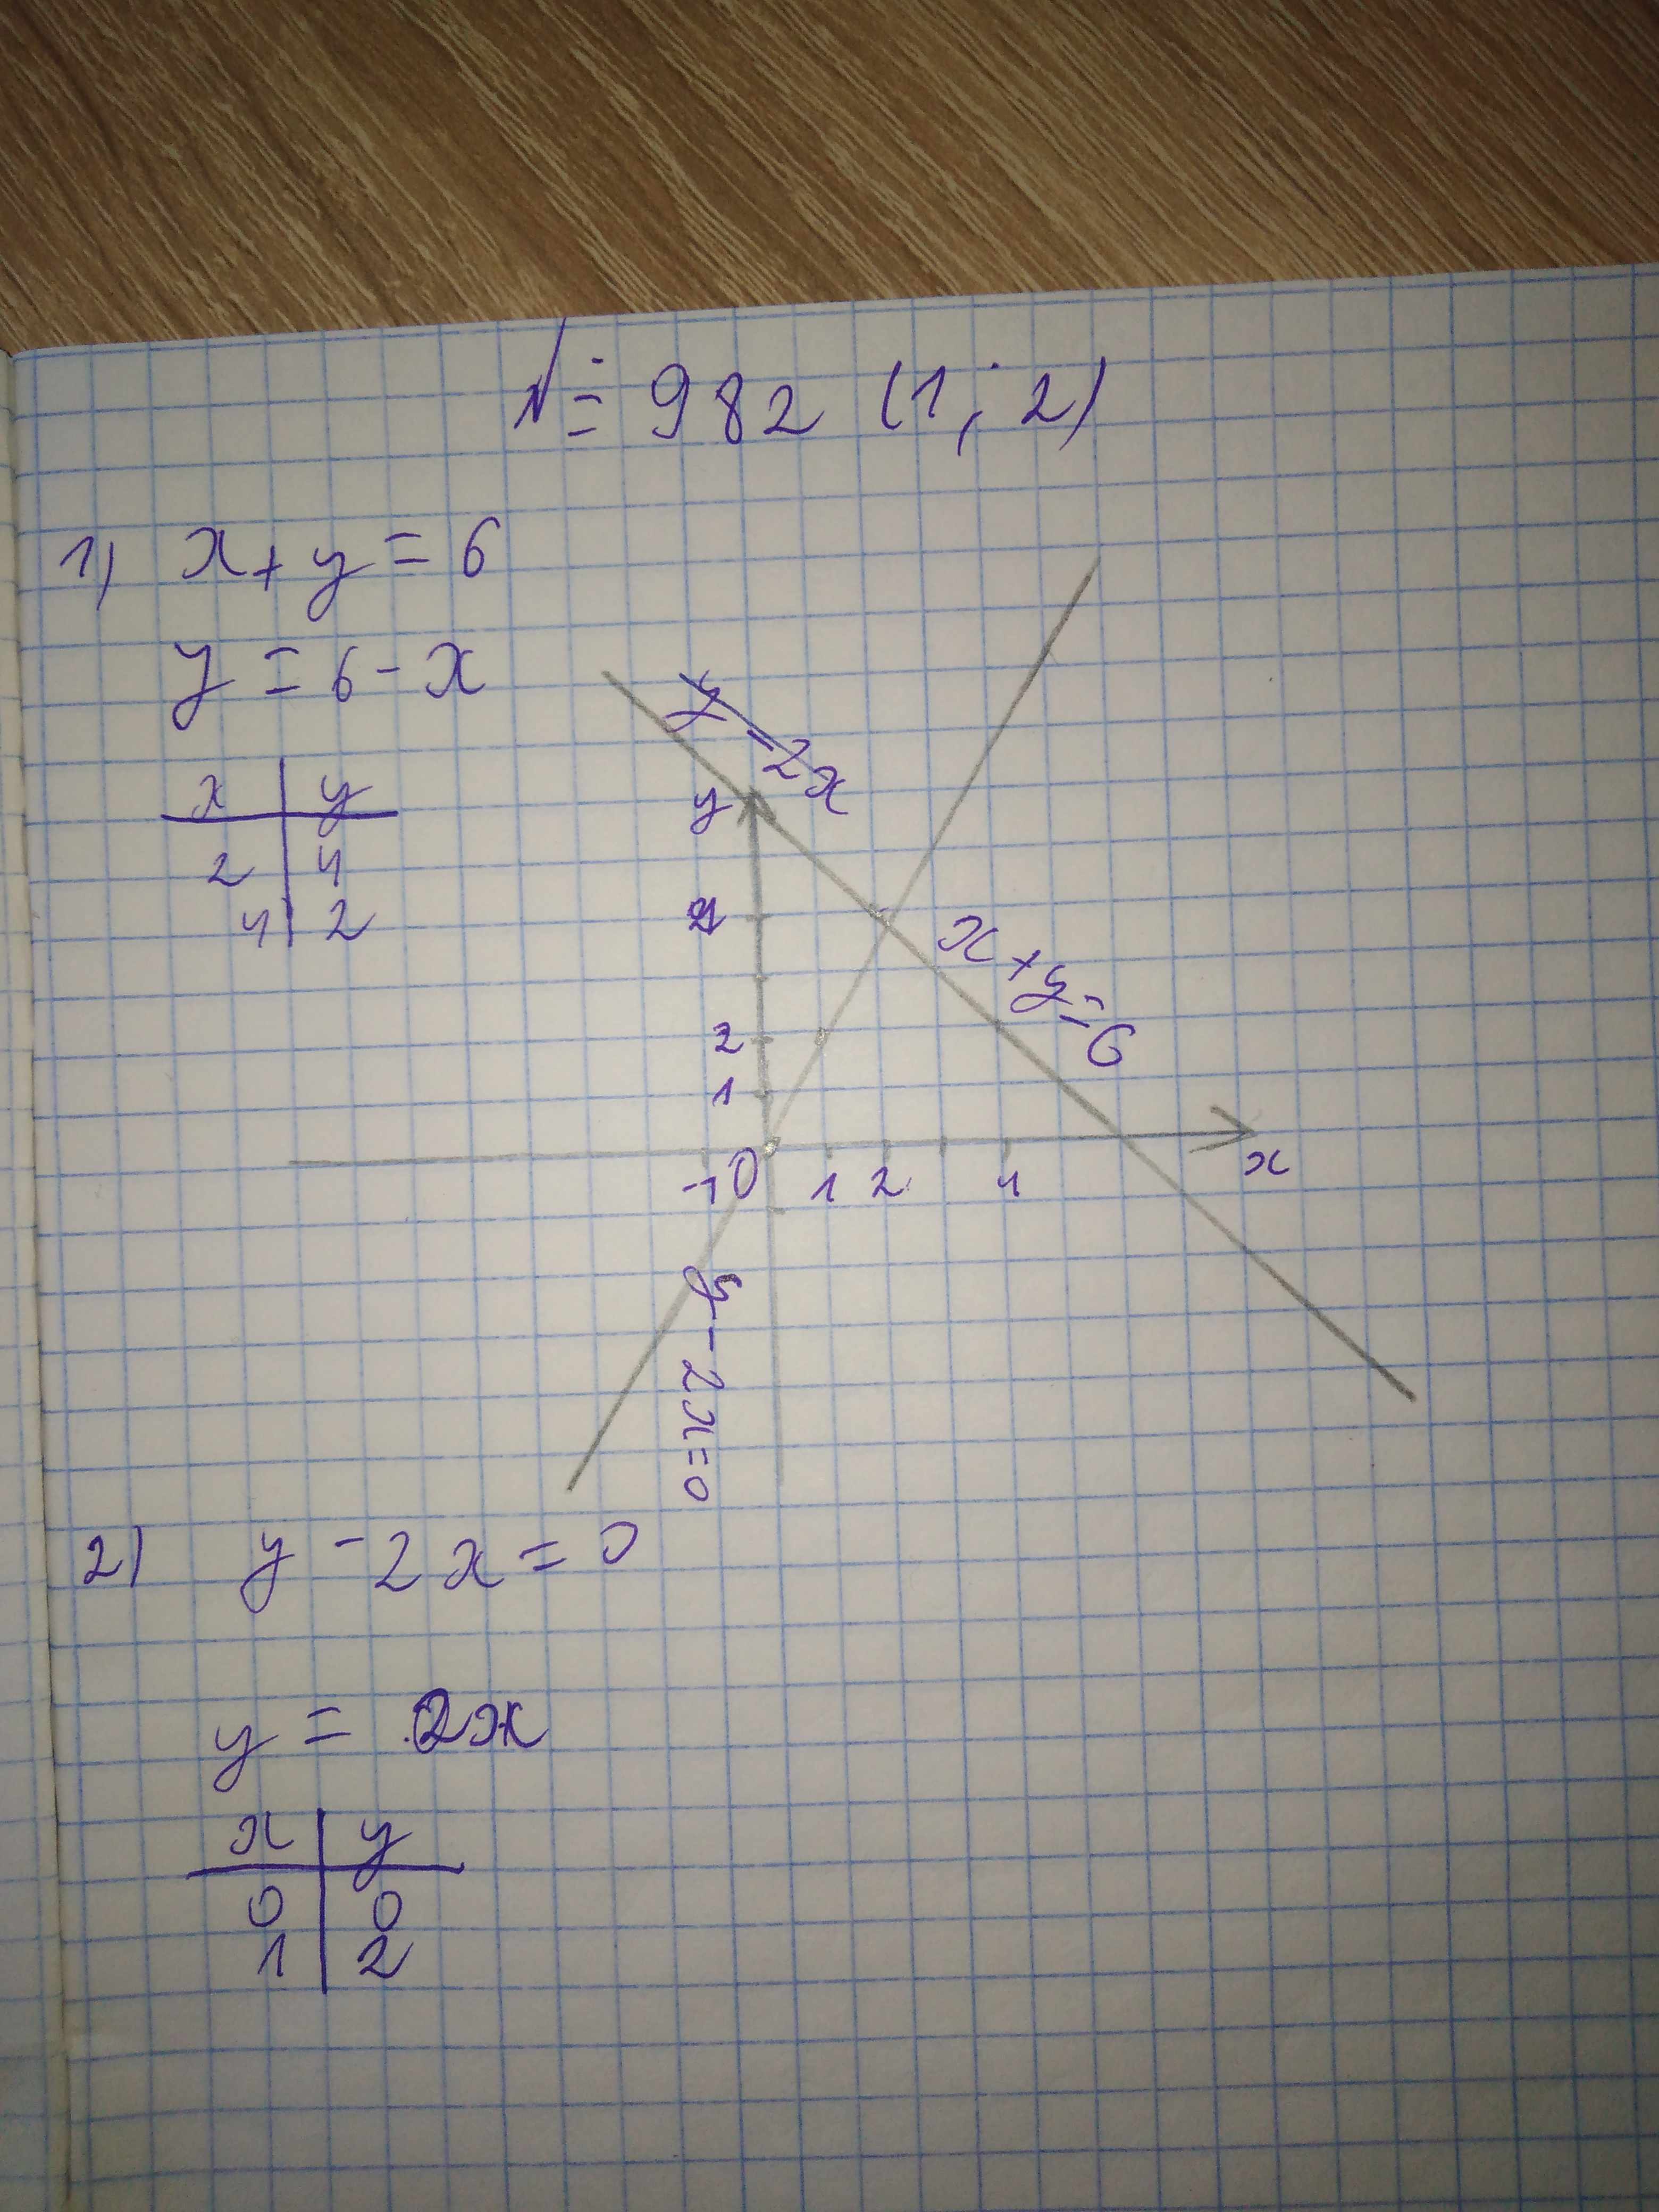 № 982 (1; 2)
1) x + y = 6
y = 6 - x
x | y
2 | 4
4 | 2
y - 2x
y
4
x + y = 6
2
1
-1 0 1 2 4 x
y - 2x = 0
2) y - 2x = 0
y = 2x
x | y
0 | 0
1 | 2